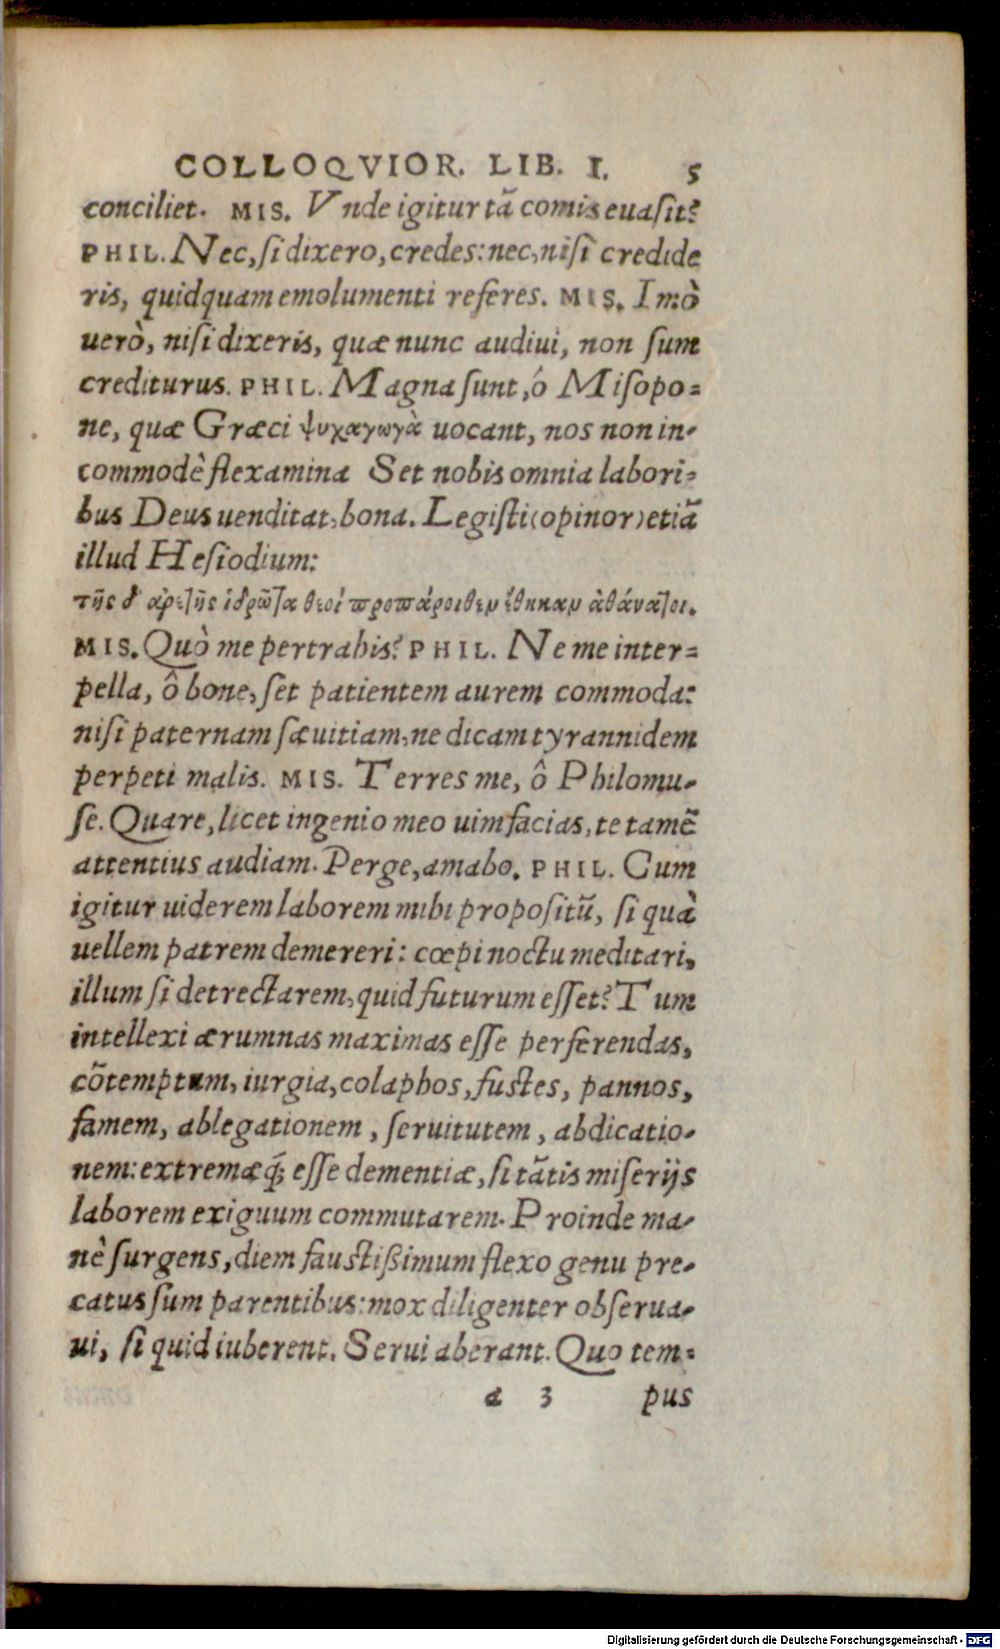 COLLOQVIOR. LIB. I. 5
conciliet. MIS. Vnde igitur tã comis euaſit?
PHIL. Nec, ſi dixero, credes: nec, niſi credide
ris, quidquam emolumenti referes. MIS. Imò
uerò, niſi dixeris, quæ nunc audiui, non ſum
crediturus. PHIL. Magna ſunt, ó Miſopo=
ne, quæ Græci ψυχαγωγὰ uocant, nos non in-
commodè flexamina Set nobis omnia labori=
bus Deus uenditat, bona. Legiſti (opinor) etiã
illud Heſiodium:
τῆς δ' ἀρετῆς ἱδρῶτα θεοί προπάροιθεν ἔθηκαν ἀθάνατοι.
MIS. Quò me pertrahis? PHIL. Ne me inter=
pella, ô bone, ſet patientem aurem commoda:
niſi paternam ſæuitiam, ne dicam tyrannidem
perpeti malis. MIS. Terres me, ô Philomu-
ſe. Quare, licet ingenio meo uim facias, te tamẽ
attentius audiam. Perge, amabo. PHIL. Cum
igitur uiderem laborem mihi propoſitũ, ſi quà
uellem patrem demereri: cœpi noctu meditari,
illum ſi detrectarem, quid futurum eſſet? Tum
intellexi ærumnas maximas eſſe perferendas,
cõtemptum, iurgia, colaphos, fuſtes, pannos,
famem, ablegationem, ſeruitutem, abdicatio-
nem: extremæq́; eſſe dementiæ, ſi tãtis miſerijs
laborem exiguum commutarem. Proinde ma-
nè ſurgens, diem fauſtißimum flexo genu pre-
catus ſum parentibus: mox diligenter obſerua-
ui, ſi quid iuberent. Serui aberant. Quo tem=
a 3 pus
Digitalisierung gefördert durch die Deutsche Forschungsgemeinschaft - DFG